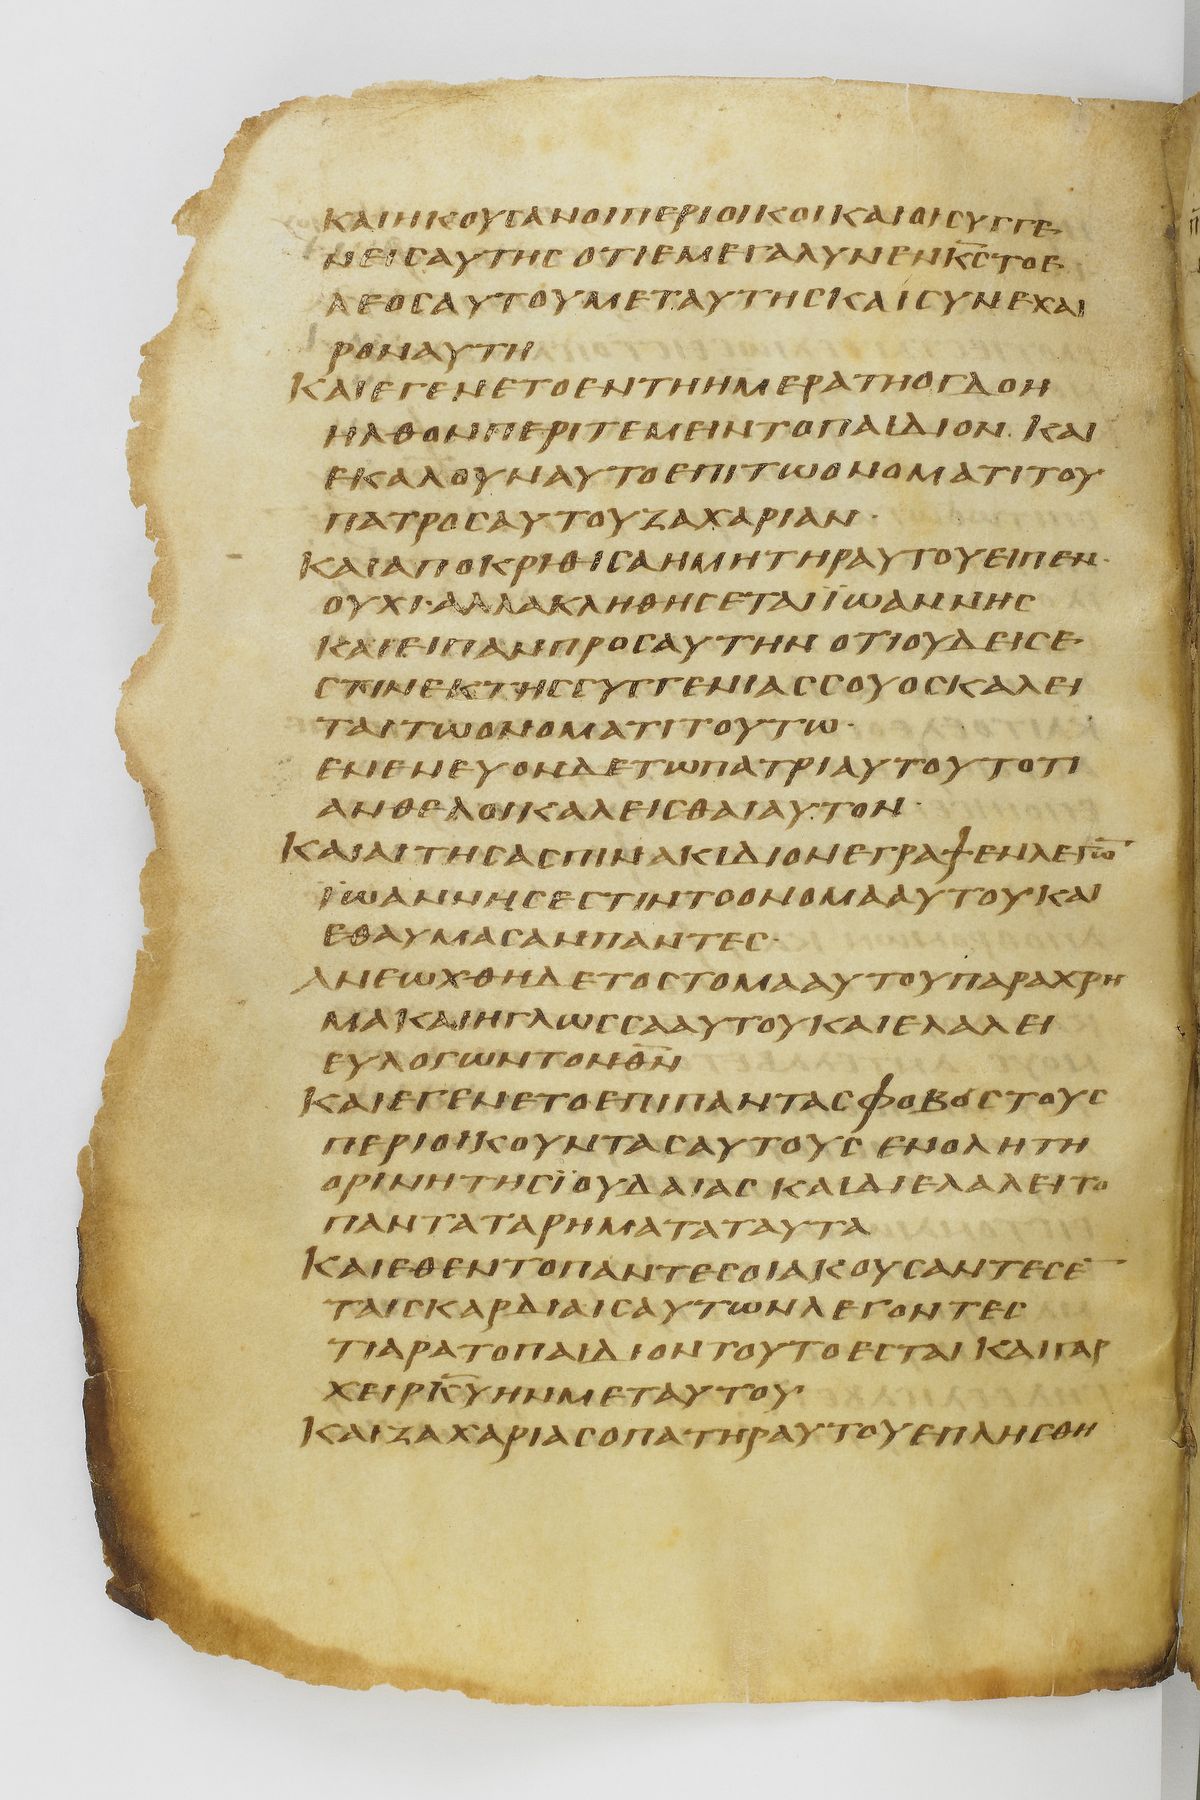 ΚΑΙΗΚΟΥΣΑΝΟΙΠΕΡΙΟΙΚΟΙΚΑΙΟΙΣΥΓΓΕ
ΝΕΙΣΑΥΤΗΣΟΤΙΕΜΕΓΑΛΥΝΕΝΚ̅Σ̅ΤΟΕ
ΛΕΟΣΑΥΤΟΥΜΕΤΑΥΤΗΣΚΑΙΣΥΝΕΧΑΙ
ΡΟΝΑΥΤΗ
ΚΑΙΕΓΕΝΕΤΟΕΝΤΗΗΜΕΡΑΤΗΟΓΔΟΗ
ΗΛΘΟΝΠΕΡΙΤΕΜΕΙΝΤΟΠΑΙΔΙΟΝ·ΚΑΙ
ΕΚΑΛΟΥΝΑΥΤΟΕΠΙΤΩΟΝΟΜΑΤΙΤΟΥ
ΠΑΤΡΟΣΑΥΤΟΥΖΑΧΑΡΙΑΝ·
ΚΑΙΑΠΟΚΡΙΘΙΣΑΗΜΗΤΗΡΑΥΤΟΥΕΙΠΕΝ·
ΟΥΧΙ·ΑΛΛΑΚΛΗΘΗΣΕΤΑΙΪΩΑΝΝΗΣ
ΚΑΙΕΙΠΑΝΠΡΟΣΑΥΤΗΝΟΤΙΟΥΔΕΙΣΕ
ΣΤΙΝΕΚΤΗΣΣΥΓΓΕΝΙΑΣΣΟΥΟΣΚΑΛΕΙ
ΤΑΙΤΩΟΝΟΜΑΤΙΤΟΥΤΩ·
ΕΝΕΝΕΥΟΝΔΕΤΩΠΑΤΡΙΑΥΤΟΥΤΟΤΙ
ΑΝΘΕΛΟΙΚΑΛΕΙΣΘΑΙΑΥΤΟΝ·
ΚΑΙΑΙΤΗΣΑΣΠΙΝΑΚΙΔΙΟΝΕΓΡΑΨΕΝΛΕΓΩ̅
ΪΩΑΝΝΗΣΕΣΤΙΝΤΟΟΝΟΜΑΑΥΤΟΥΚΑΙ
ΕΘΑΥΜΑΣΑΝΠΑΝΤΕΣ·
ΑΝΕΩΧΘΗΔΕΤΟΣΤΟΜΑΑΥΤΟΥΠΑΡΑΧΡΗ
ΜΑΚΑΙΗΓΛΩΣΣΑΑΥΤΟΥΚΑΙΕΛΑΛΕΙ
ΕΥΛΟΓΩΝΤΟΝΘ̅Ν̅
ΚΑΙΕΓΕΝΕΤΟΕΠΙΠΑΝΤΑΣΦΟΒΟΣΤΟΥΣ
ΠΕΡΙΟΙΚΟΥΝΤΑΣΑΥΤΟΥΣΕΝΟΛΗΤΗ
ΟΡΙΝΗΤΗΣΪΟΥΔΑΙΑΣΚΑΙΔΙΕΛΑΛΕΙΤΟ
ΠΑΝΤΑΤΑΡΗΜΑΤΑΤΑΥΤΑ
ΚΑΙΕΘΕΝΤΟΠΑΝΤΕΣΟΙΑΚΟΥΣΑΝΤΕΣΕ̅
ΤΑΙΣΚΑΡΔΙΑΙΣΑΥΤΩΝΛΕΓΟΝΤΕΣ
ΤΙΑΡΑΤΟΠΑΙΔΙΟΝΤΟΥΤΟΕΣΤΑΙΚΑΙΓΑΡ
ΧΕΙΡΚ̅Υ̅ΗΝΜΕΤΑΥΤΟΥ
ΚΑΙΖΑΧΑΡΙΑΣΟΠΑΤΗΡΑΥΤΟΥΕΠΛΗΣΘΗ